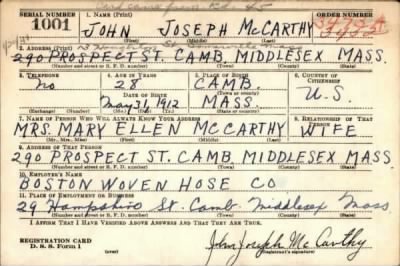 Card came from Bd. 45
SERIAL NUMBER 1. NAME (Print) ORDER NUMBER
1001 JOHN JOSEPH McCARTHY
(First) (Middle) (Last)
2. ADDRESS (Print) 13 Houghton St Somerville Mass
290 PROSPECT ST. CAMB. MIDDLESEX MASS.
(Number and street or R. F. D. number) (Town) (County) (State)
3. TELEPHONE 4. AGE IN YEARS 5. PLACE OF BIRTH 6. COUNTRY OF CITIZENSHIP
No 28 CAMB.
(Town or county)
DATE OF BIRTH
May 31, 1912 MASS. U.S.
(Exchange) (Number) (Mo.) (Day) (Yr.) (State or country)
7. NAME OF PERSON WHO WILL ALWAYS KNOW YOUR ADDRESS 8. RELATIONSHIP OF THAT PERSON
MRS. MARY ELLEN McCARTHY WIFE
(Mr., Mrs., Miss) (First) (Middle) (Last)
9. ADDRESS OF THAT PERSON
290 PROSPECT ST. CAMB. MIDDLESEX MASS
(Number and street or R. F. D. number) (Town) (County) (State)
10. EMPLOYER'S NAME
BOSTON WOVEN HOSE CO
11. PLACE OF EMPLOYMENT OR BUSINESS
29 Hampshire St. Camb Middlesex Mass
(Number and street or R. F. D. number) (Town) (County) (State)
I AFFIRM THAT I HAVE VERIFIED ABOVE ANSWERS AND THAT THEY ARE TRUE.
REGISTRATION CARD
D. S. S. Form 1
John Joseph McCarthy
(Registrant's signature)